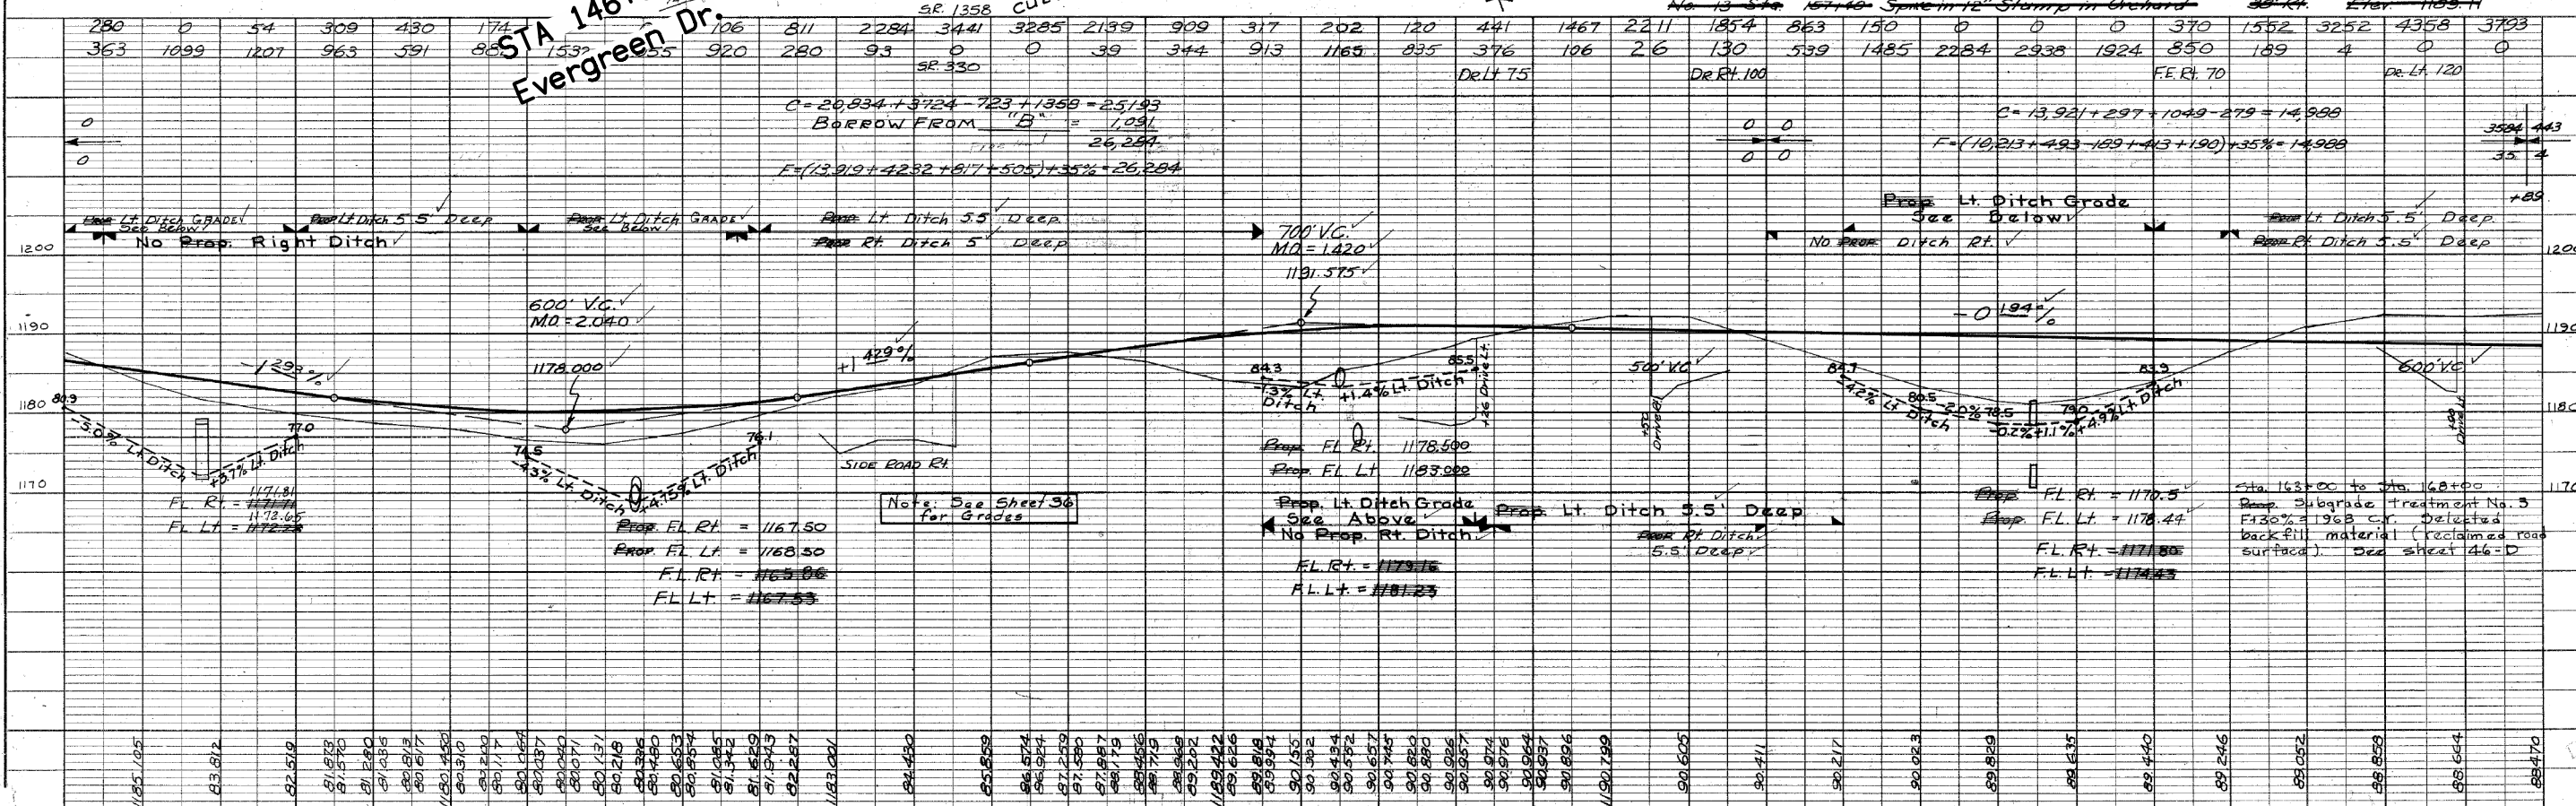 S.R. 1358
STA 146+
Evergreen Dr.
No. 13 Sta. 157+40 Spike in 12" Stump in Orchard 38' Rt. Elev. 1189.11
280 0 54 309 430 174 106 811 2284 3441 3285 2139 909 317 202 120 441 1467 2211 1854 863 150 0 0 0 370 1552 3252 4358 3793
363 1099 1207 963 591 1532 920 280 93 0 0 39 344 913 1165 835 376 106 26 130 539 1485 2284 2938 1924 850 189 4 0 0
S.R. 330
De Lt 75
De Rt. 100
F.E. Rt. 70
De. Lt. 120
C = 20,834 + 3724 - 723 + 1358 = 25193
BORROW FROM "B" = 1,091
26,284
F=(13,919+4232+817+505)+35%=26,284
C = 13,921 + 297 + 1049 - 279 = 14,988
F=(10,213+493-189+413+190)+35%=14,988
0
0
0 0
0 0
3584 443
35 4
+89
Prop Lt. Ditch GRADE
See Below
Prop Lt Ditch 5.5' Deep
Prop Lt. Ditch GRADE
See Below
Prop Lt. Ditch 5.5' Deep
Prop Rt. Ditch 5' Deep
No Prop. Right Ditch
Prop Lt. Ditch Grade
See Below
No Prop Ditch Rt.
Prop Lt. Ditch 5.5' Deep
Prop Rt. Ditch 5.5' Deep
1200
1200
700' V.C.
M.O. = 1.420
1191.575
600' V.C.
M.O. = 2.040
1178.000
1190
1190
-1.293%
+1.429%
-0.194%
500' V.C.
600' V.C.
1180
1180
80.9
-5.0% Lt. Ditch
+3.7% Lt. Ditch
77.0
74.5
-4.3% Lt. Ditch
+4.75% Lt. Ditch
76.1
SIDE ROAD Rt.
84.3
-1.3% Lt. Ditch
+1.4% Lt. Ditch
85.5
+26 Drive Lt.
Drive Rt.
84.7
-4.2% Lt. Ditch
80.5
-2.0%
78.5
-0.2%
+1.1%
79.0
+4.9% Lt. Ditch
83.9
Drive Lt.
1170
1170
FL Rt. = 1171.81
FL Lt = 1172.65
Prop. FL Rt. = 1167.50
Prop. FL Lt. = 1168.50
F.L. Rt. = 1165.86
F.L. Lt. = 1167.53
Note: See Sheet 36
for Grades
Prop. FL Rt. 1178.500
Prop. FL Lt 1183.000
Prop. Lt. Ditch Grade
See Above
No Prop. Rt. Ditch
F.L. Rt. = 1179.16
F.L. Lt. = 1181.23
Prop. Lt. Ditch 5.5' Deep
Prop Rt. Ditch
5.5' Deep
Prop FL Rt. = 1170.5
Prop. FL. Lt. = 1178.44
F.L. Rt. = 1171.80
F.L. Lt. = 1174.43
Sta. 163+00 to Sta. 168+00
Prop. Subgrade Treatment No. 3
F+30% = 1968 C.Y. Selected
backfill material (reclaimed road
surface). See sheet 46-D
1185.105 83.812 82.519 81.873 81.570 81.280 81.036 80.813 80.617 1180.450 80.310 80.200 80.117 80.064 80.037 80.040 80.071 80.131 80.218 80.336 80.480 80.653 80.854 81.085 81.342 81.629 81.943 82.287 1183.001 84.430 85.859 86.574 86.924 87.259 87.580 87.887 88.179 88.456 88.719 88.968 89.202 1189.422 89.626 89.818 89.994 90.155 90.302 90.434 90.552 90.657 90.745 90.820 90.880 90.926 90.957 90.974 90.976 90.964 90.937 90.896 1190.799 90.605 90.411 90.217 90.023 89.829 89.635 89.440 89.246 89.052 88.858 88.664 88.470